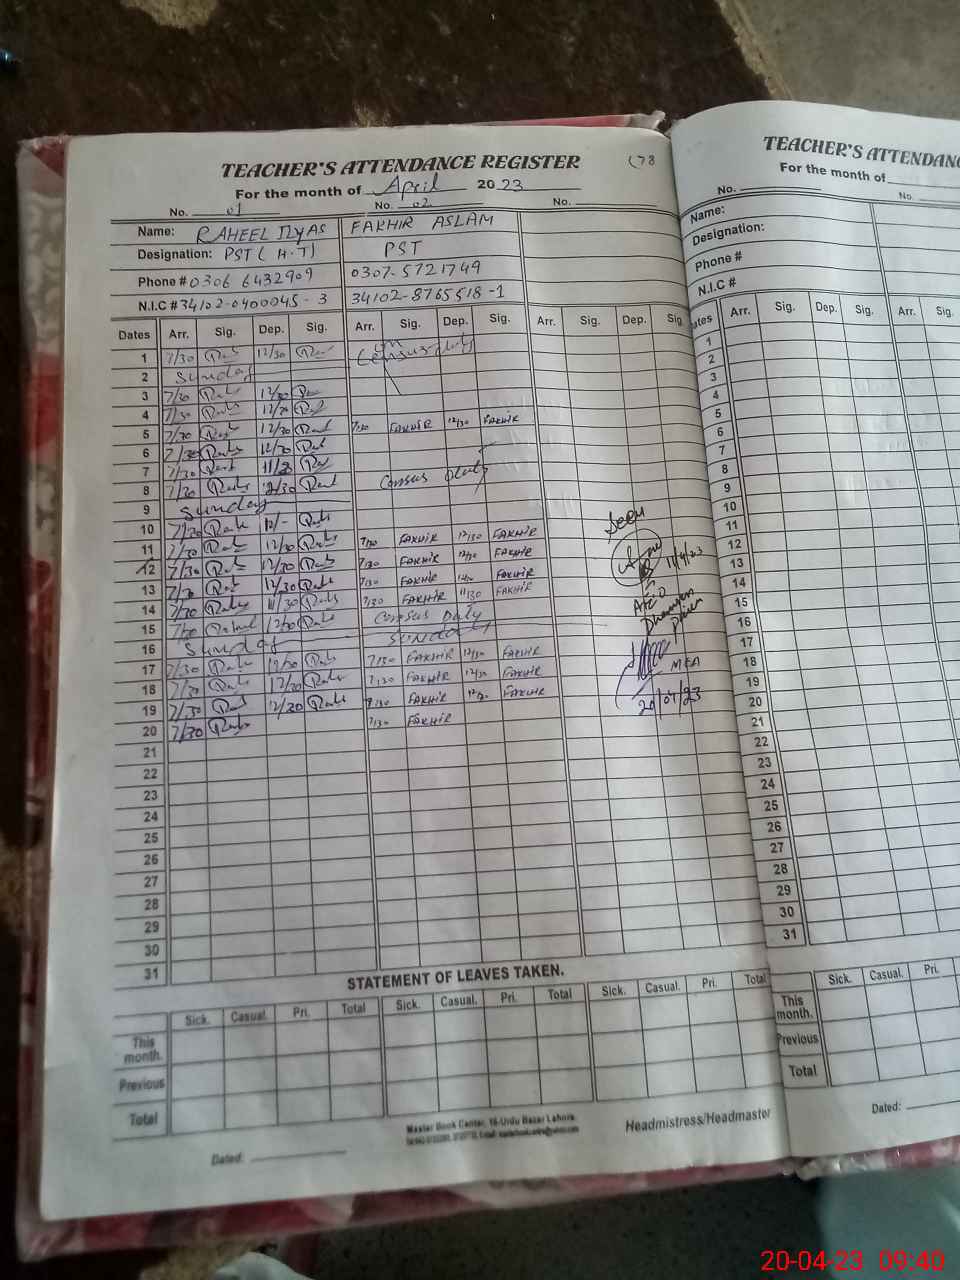 TEACHER'S ATTENDANCE REGISTER (78
For the month of April 2023
No. 01 No. 02 No.
Name: RAHEEL ILYAS FAKHIR ASLAM
Designation: PST ( H.T) PST
Phone # 0306 6432909 0307-5721749
N.I.C # 34102-0400045-3 34102-8765518-1
Dates Arr. Sig. Dep. Sig. Arr. Sig. Dep. Sig. Arr. Sig. Dep. Sig.
1 7/30 12/30 on Census duty
2 Sunday
3 7/30 12/30
4 7/30 12/30
5 7/30 12/30 7/30 FAKHIR 12/30 FAKHIR
6 7/30 12/30
7 7/30 11/30
8 7/30 12/30 Census Duty
9 Sunday
10 7/30 12/-
11 7/30 12/30 7/30 FAKHIR 12/30 FAKHIR
12 7/30 12/30 7/30 FAKHIR 12/30 FAKHIR
13 7/30 12/30 7/30 FAKHIR 12/30 FAKHIR
14 7/30 11/30 7/30 FAKHIR 11/30 FAKHIR
15 7/30 12/30 Census Duty
16 Sunday Sunday
17 7/30 12/30 7/30 FAKHIR 12/30 FAKHIR
18 7/30 12/30 7/30 FAKHIR 12/30 FAKHIR
19 7/30 12/30 7/30 FAKHIR 12/30 FAKHIR
20 7/30 7/30 FAKHIR
21
22
23
24
25
26
27
28
29
30
31
Seen
11/4/23
AEO
MEA
20/04/23
STATEMENT OF LEAVES TAKEN.
Sick. Casual. Pri. Total Sick. Casual. Pri. Total Sick. Casual. Pri. Total
This month.
Previous
Total
Master Book Center, 16-Urdu Bazar Lahore.
Headmistress/Headmaster
Dated:
TEACHER'S ATTENDANC
For the month of
No. No.
Name:
Designation:
Phone #
N.I.C #
Dates Arr. Sig. Dep. Sig. Arr. Sig.
1
2
3
4
5
6
7
8
9
10
11
12
13
14
15
16
17
18
19
20
21
22
23
24
25
26
27
28
29
30
31
Sick. Casual. Pri.
This month.
Previous
Total
Dated:
20-04-23 09:40